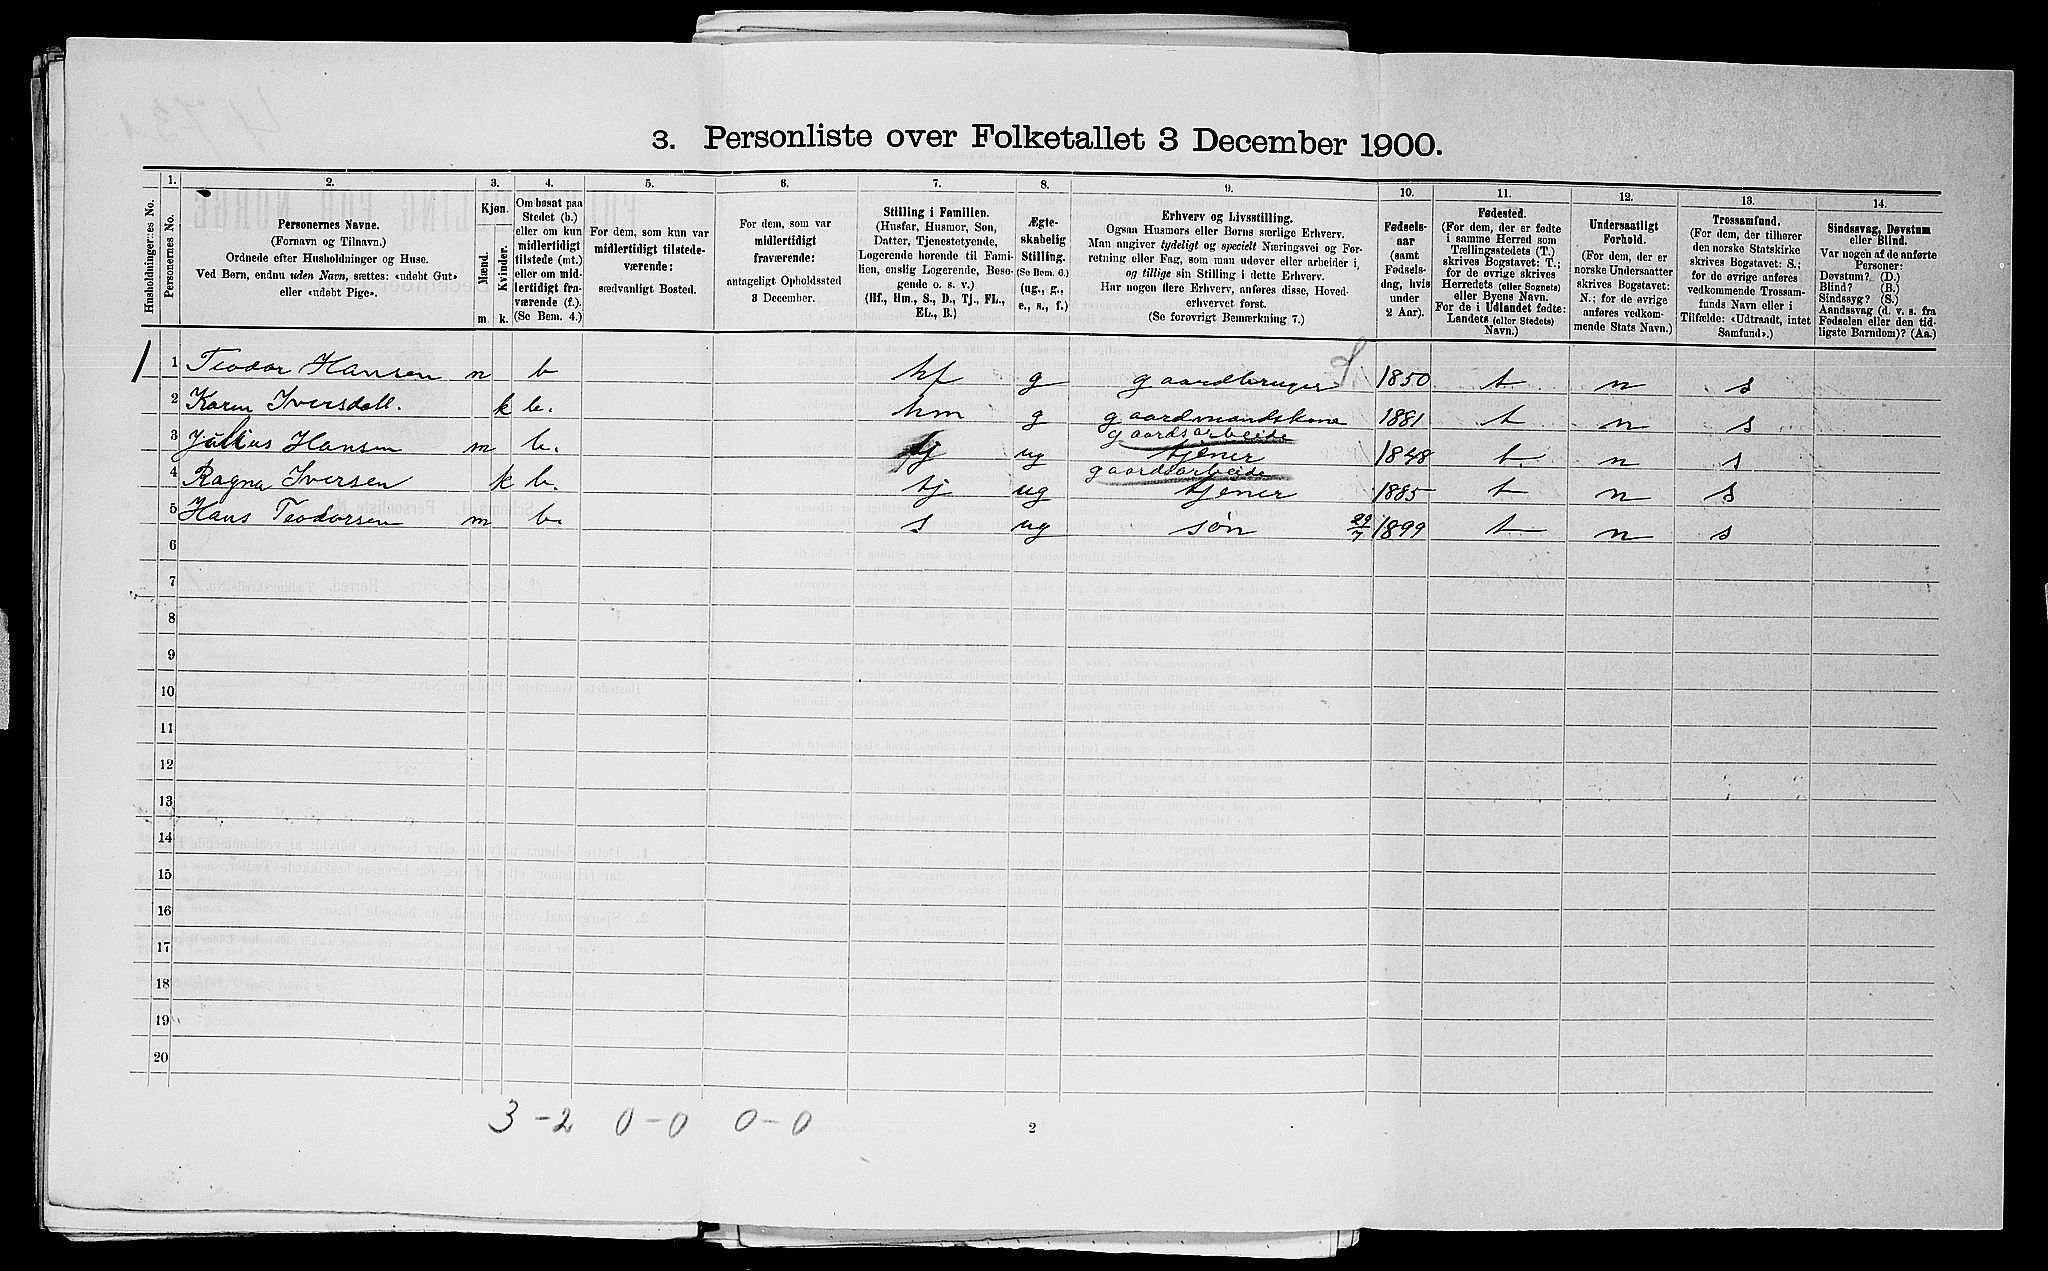 3. Personliste over Folketallet 3 December 1900.
Husholdningernes No.
1. Personernes No.
2. Personernes Navne.
(Fornavn og Tilnavn.)
Ordnede efter Husholdninger og Huse.
Ved Børn, endnu uden Navn, sættes: «udøbt Gut»
eller «udøbt Pige».
3. Kjøn.
Mænd. Kvinder.
m. k.
4. Om bosat paa
Stedet (b.)
eller om kun
midlertidigt
tilstede (mt.)
eller om mid-
lertidigt fra-
værende (f.).
(Se Bem. 4.)
5. For dem, som kun var
midlertidigt tilstede-
værende:
sædvanligt Bosted.
6. For dem, som var
midlertidigt
fraværende:
antageligt Opholdssted
3 December.
7. Stilling i Familien.
(Husfar, Husmor, Søn,
Datter, Tjenestetyende,
Logerende hørende til Fami-
lien, enslig Logerende, Besø-
gende o. s. v.)
(Hf., Hm., S., D., Tj., FL.,
EL., B.)
8. Ægte-
skabelig
Stilling.
(Se Bem. 6.)
(ug., g.,
e., s., f.)
9. Erhverv og Livsstilling.
Ogsaa Husmors eller Børns særlige Erhverv.
Man angiver tydeligt og specielt Næringsvei og For-
retning eller Fag, som man udøver eller arbeider i,
og tillige sin Stilling i dette Erhverv.
Har nogen flere Erhverv, anføres disse, Hoved-
erhvervet først.
(Se forøvrigt Bemærkning 7.)
10. Fødsels-
aar
(samt
Fødsels-
dag, hvis
under
2 Aar).
11. Fødested.
(For dem, der er fødte
i samme Herred som
Tællingsstedets (T.)
skrives Bogstavet: T.;
for de øvrige skrives
Herredets (eller Sognets)
eller Byens Navn.
For de i Udlandet fødte:
Landets (eller Stedets)
Navn.)
12. Undersaatligt
Forhold.
(For dem, der er
norske Undersaatter
skrives Bogstavet:
N.; for de øvrige
anføres vedkom-
mende Stats Navn.)
13. Trossamfund.
(For dem, der tilhører
den norske Statskirke
skrives Bogstavet: S.;
for de øvrige anføres
vedkommende Trossam-
funds Navn eller i
Tilfælde: «Udtraadt, intet
Samfund».)
14. Sindssvag, Døvstum
eller Blind.
Var nogen af de anførte
Personer:
Døvstum? (D.)
Blind? (B.)
Sindssyg? (S.)
Aandssvag (d. v. s. fra
Fødselen eller den tid-
ligste Barndom)? (Aa.)
1 1 Teodor Hansen m b hf g gaardbruger S. 1850 t n s
2 Karen Iversdatt. k b. hm g gaardmandskone 1881 t n s
gaardsarbeide
3 Julius Hansen m b. tj ug tjener 1848 t. n s
gaardsarbeide
4 Ragna Iversen k b. tj ug tjener 1885 t n s
5 Hans Teodorsen m b. s ug søn 29/7 1899 t n s
6
7
8
9
10
11
12
13
14
15
16
17
18
19
20
3 - 2 0 - 0 0 - 0
2